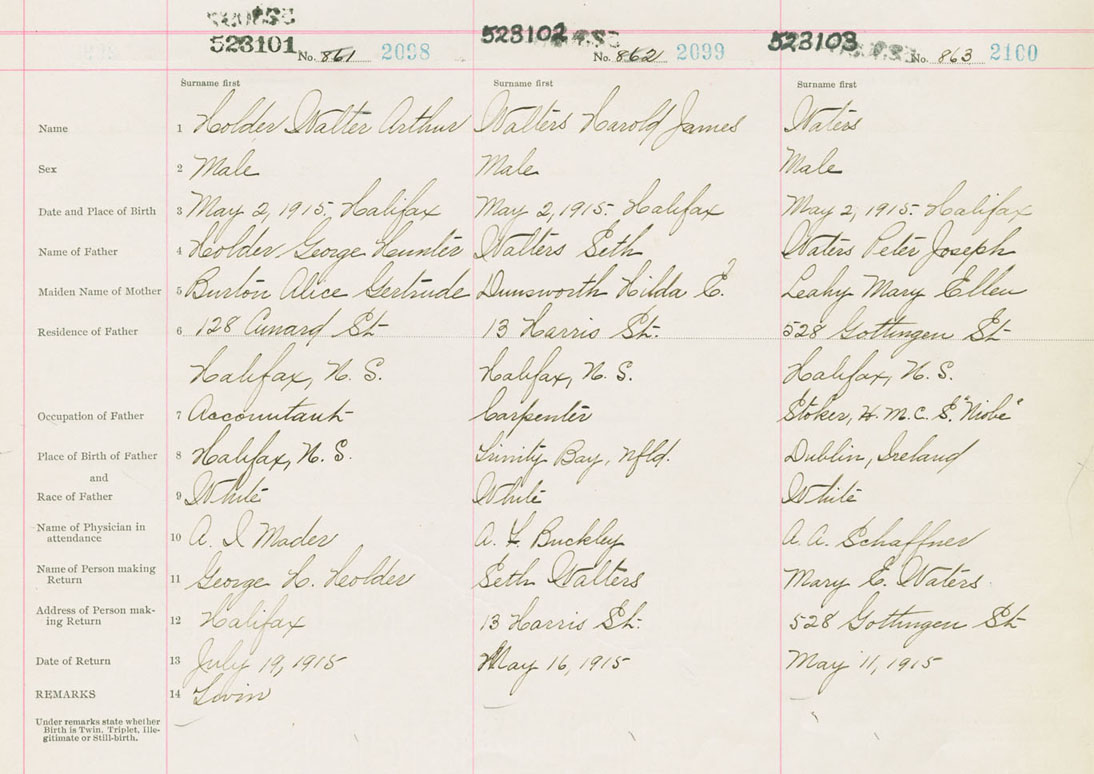 523101 523102 523103
No. 861 2098 No. 862 2099 No. 863 2100
Surname first Surname first Surname first
Name 1 Holder Walter Arthur Walters Harold James Waters
Sex 2 Male Male Male
Date and Place of Birth 3 May 2, 1915. Halifax May 2, 1915. Halifax May 2, 1915. Halifax
Name of Father 4 Holder George Hunter Walters Seth Waters Peter Joseph
Maiden Name of Mother 5 Burton Alice Gertrude Dunsworth Hilda E. Leahy Mary Ellen
Residence of Father 6 128 Cunard St 13 Harris St. 528 Gottingen St
Halifax, N. S. Halifax, N. S. Halifax, N. S.
Occupation of Father 7 Accountant Carpenter Stoker, H. M. C. S. "Niobe"
Place of Birth of Father 8 Halifax, N. S. Trinity Bay, Nfld. Dublin, Ireland
and
Race of Father 9 White White White
Name of Physician in
attendance 10 A. I Mader A. Buckley A. A. Schaffner
Name of Person making
Return 11 George H. Holder Seth Walters Mary E. Waters
Address of Person mak-
ing Return 12 Halifax 13 Harris St. 528 Gottingen St
Date of Return 13 July 19, 1915 May 16, 1915 May 11, 1915
REMARKS 14 Twin
Under remarks state whether
Birth is Twin, Triplet, Ille-
gitimate or Still-birth.